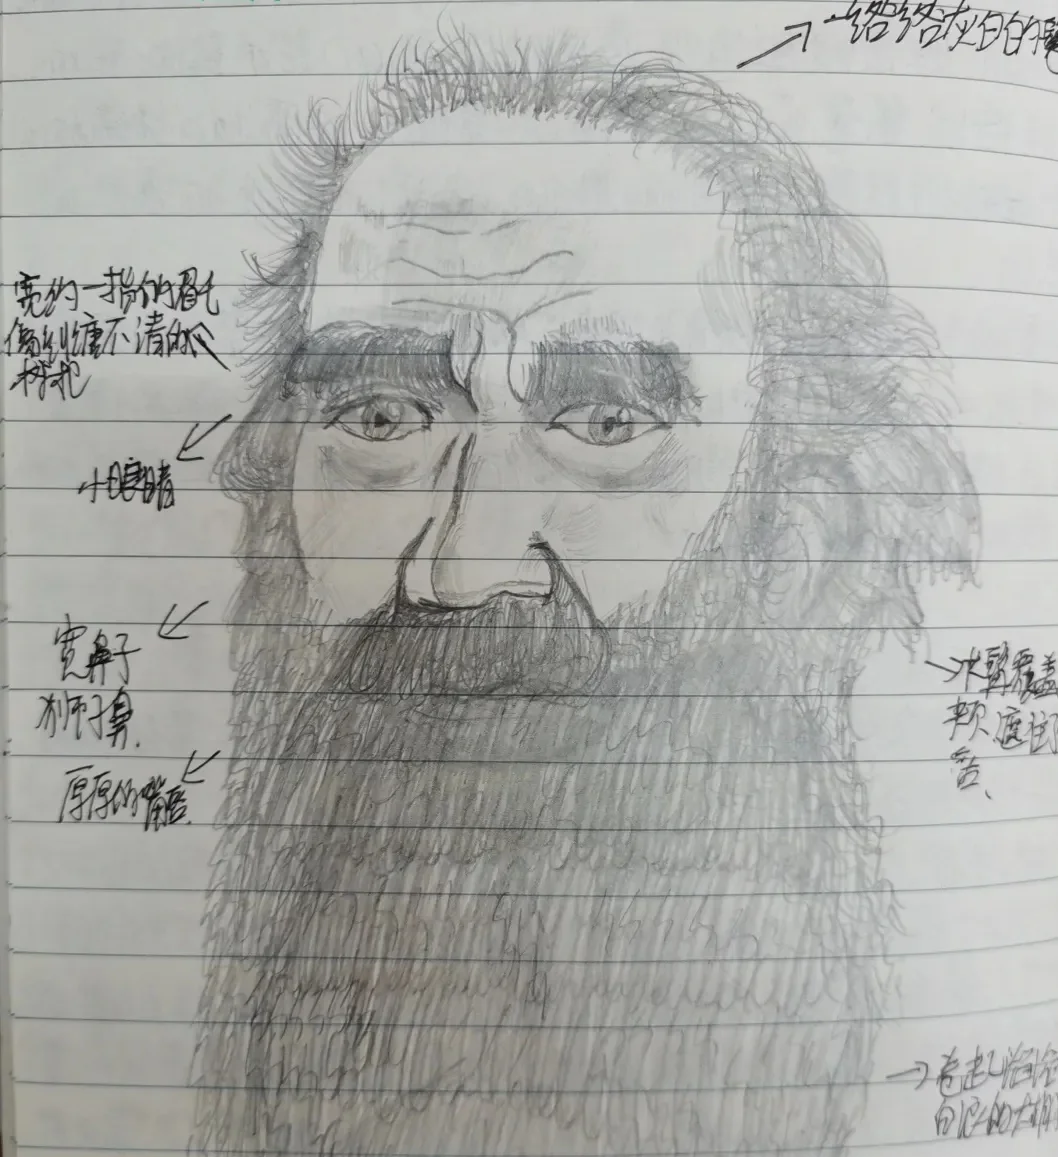 一绺绺灰白的鬈
宽约一指的眉毛
像纠缠不清的
树根
小眼睛
宽鼻子
狮子鼻
厚厚的嘴唇
覆盖
遮住
卷起滔滔
白浪的大胡